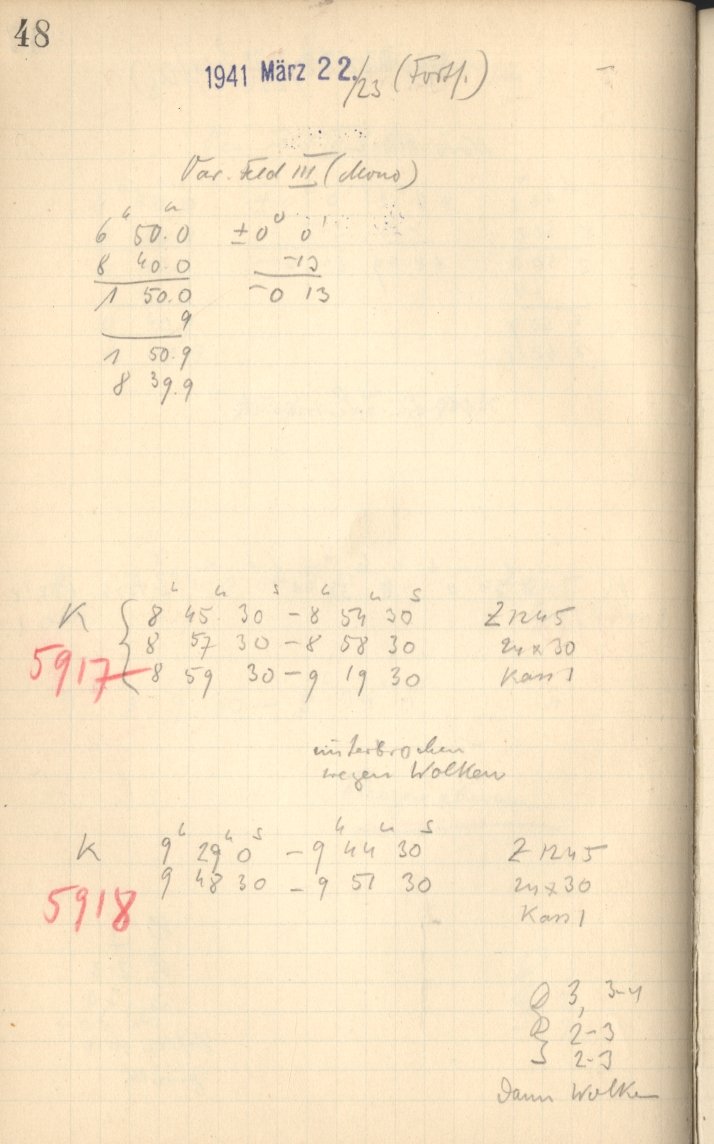 48
1941 März 22./23 (Forts.)
Var. Feld III (Mono)
6h 50.0m ±0° 0'
8 40.0 -13
1 50.0 -0 13
9
1 50.9
8 39.9
K { 8h 45m 30s – 8h 54m 30s Z 1245
8 57 30 – 8 58 30 24 x 30
5917 8 59 30 – 9 19 30 Kass 1
unterbrochen
wegen Wolken
K 9h 29m 0s – 9h 44m 30s Z 1245
9 48 30 – 9 51 30 24 x 30
5918 Kass 1
3, 3-4
2-3
2-3
Dann Wolken